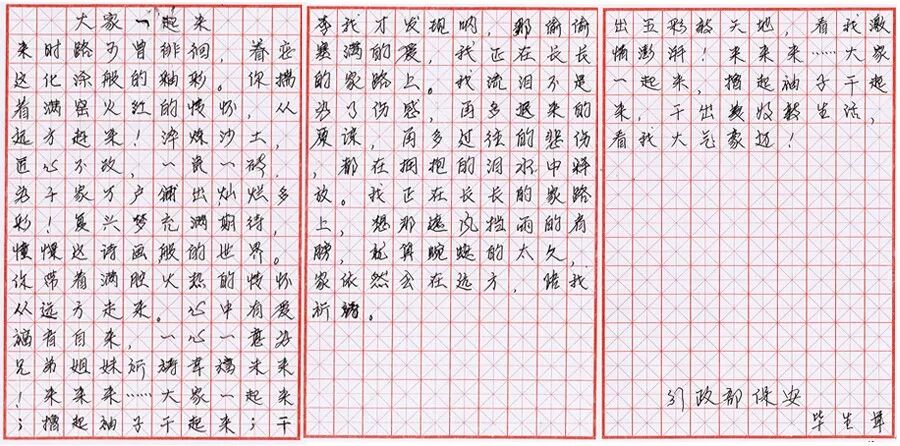 大家一起来
来时路可曾徘徊，眷恋
这化涂般的釉彩。你揣
着满窑火红的情怀，从
远方赶来！淬炼沙土，
匠心不改，一瓷一砖，
为千家万户铺出灿烂多
彩！复兴梦充满期待，
憧憬这诗画般的世界。
你带着满腔火热的情怀
从远方走来。心中有爱
福有自来，一心一意为
兄弟姐妹祈祷幸福未来
！来来来……大家一起来
；撸起袖子干起来；干
李我才发现呐，那偷偷
塞满的爱，我正在长长
的家路上。我流泪不是
为了伤感，再多迟来的
原谅，再多过往的悲伤
，都在拥抱的泪水中释
放。我正在长长的家路
上，想那遮风挡雨的肩
膀，就算蜿蜒的太久，
家依然会在远方，陪我
祈祷。
出五彩被天地，看我激
情澎湃！来来来……大家
一起来，撸起袖子干起
来，干出美好生活，
看我大气豪迈！
行政部保安
毕生